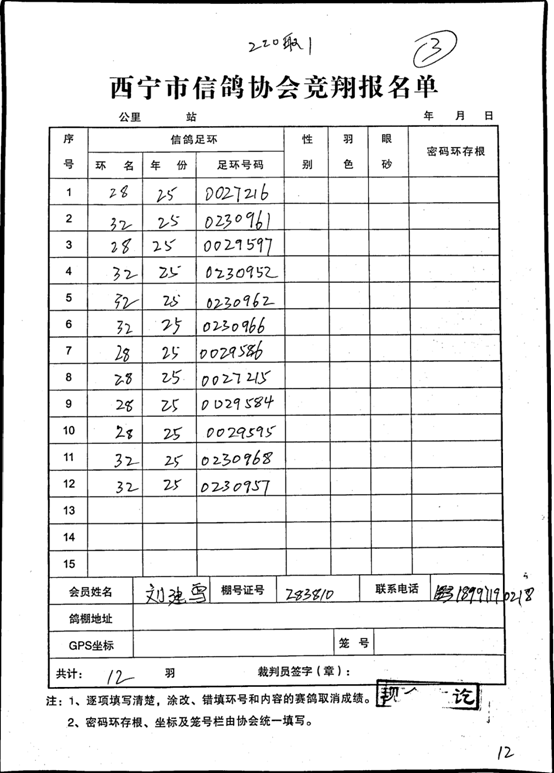 220取1
3
西宁市信鸽协会竞翔报名单
公里 站 年 月 日
序号 信鸽足环 性别 羽色 眼砂 密码环存根
环名 年份 足环号码
1 28 25 0027216
2 32 25 0230961
3 28 25 0029597
4 32 25 0230952
5 32 25 0230962
6 32 25 0230966
7 28 25 0029586
8 28 25 0027215
9 28 25 0029584
10 28 25 0029595
11 32 25 0230968
12 32 25 0230957
13
14
15
会员姓名 刘建雪 棚号证号 283810 联系电话
鸽棚地址
GPS坐标 笼号
共计: 12 羽 裁判员签字(章):
注:1、逐项填写清楚,涂改、错填环号和内容的赛鸽取消成绩。 讫
2、密码环存根、坐标及笼号栏由协会统一填写。
12